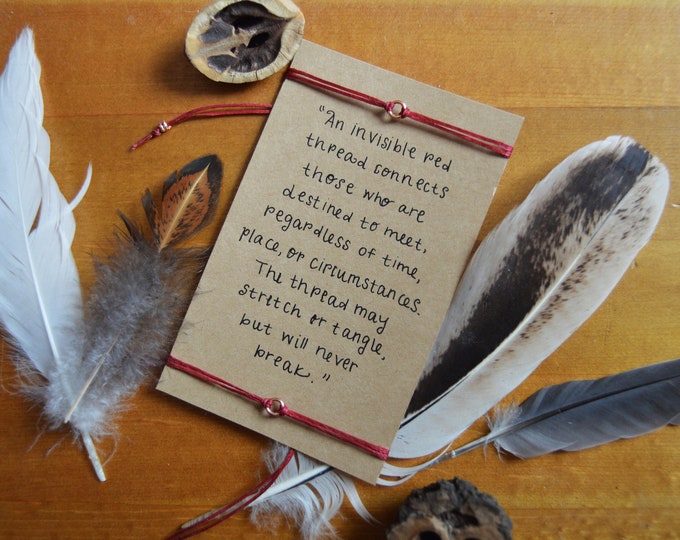 "An invisible red
thread connects
those who are
destined to meet,
regardless of time,
place, or circumstances.
The thread may
stretch or tangle,
but will never
break."